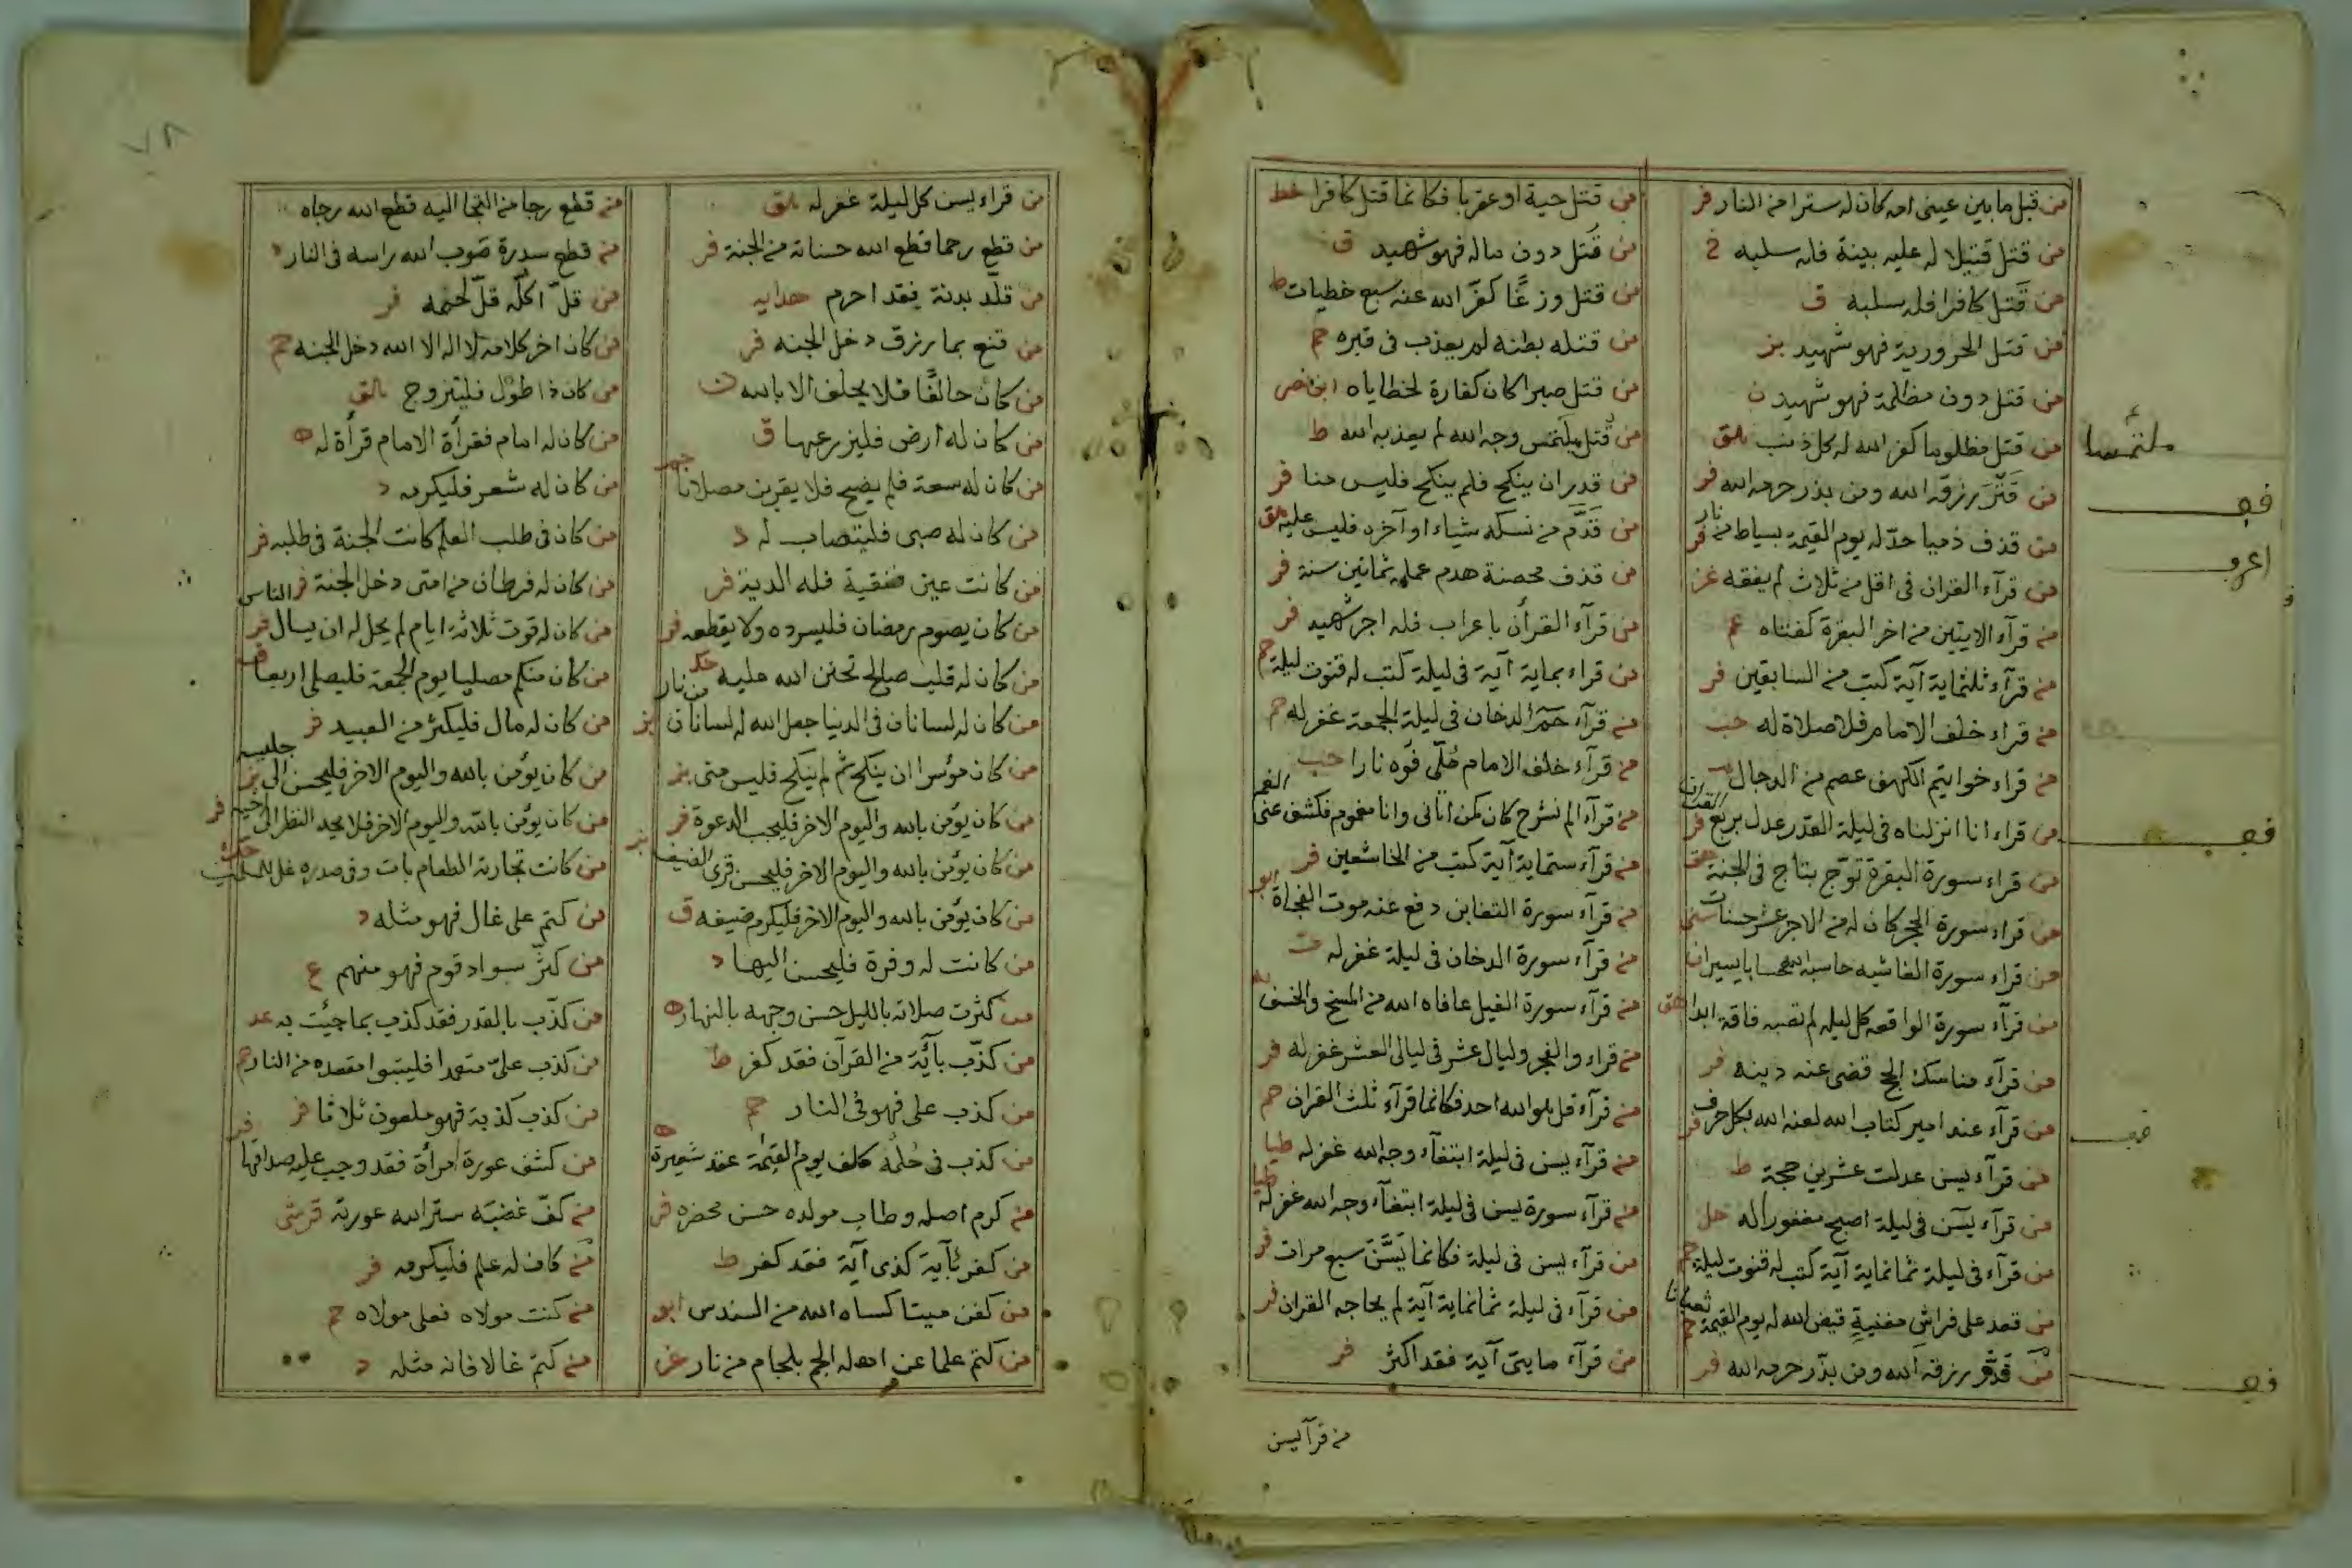 من قبل ما بين عيني امه كان له سترا من النار فر
من قتل قتيلا له عليه بينة فله سلبه خ
من قتل كافرا فله سلبه ق
من قتل الحرورية فهو شهيد بز
من قتل دون مظلمة فهو شهيد ن
من قتل مظلوما كفر الله له كل ذنب
من قتّر رزقه الله ومن بذر حرمه الله فر
من قذف ذميا حدّ له يوم القيمة بسياط من نار فر
من قرآء القران في اقل من ثلاث لم يفقه عز
من قرآء الايتين من اخر البقرة كفتاه عم
من قرآء ثلثماية آية كتب من السابقين فر
من قراء خلف الامام فلا صلاة له حب
من قراء خواتيم الكهف عصم من الدجال
من قراء انا انزلناه في ليلة القدر عدل بربع القران فر
من قراء سورة البقرة توّج بتاج في الجنة هق
من قراء سورة الحجر كان له من الاجر عشر حسنات
من قراء سورة الغاشيه حاسبه الله حسابا يسيرا
من قرآء سورة الواقعه كل ليله لم تصبه فاقة ابدا هق
من قرآء مناسك الحج قضى عنه دينه فر
من قرآء عند امير كتاب الله لعنه الله بكل حرف فر
من قرآء يسن عدلت عشرين حجة ط
من قرآء يسٓن في ليلة اصبح مغفورا له حل
من قرآء في ليلة ثمانماية آية كتب له قنوت ليلة حم
من قعد على فراش مغنية قيض الله له يوم القيمة ثعبانا حم
من قدّر رزقه الله ومن بذّر حرمه الله فر
من قتل حية او عقربا فكانما قتل كافرا خط
من قتل دون ماله فهو شهيد ق
من قتل وزغًا كفّر الله عنه سبع خطيات ط
من قتله بطنه لم يعذب في قبره حم
من قتل صبرا كان كفارة لخطاياه
من قتل يلتمس وجه الله لم يعذبه الله ط
من قدر ان ينكح فلم ينكح فليس منا فر
من قدّم من نسكه شياء او آخره فليس عليه هق
من قذف محصنة هدم عمله ثمانين سنة فر
من قرآء القرأن باعراب فله اجر شهيد فر
من قراء بماية آية في ليلة كتب له قنوت ليلة حم
من قرآء حمٓ الدخان في ليلة الجمعة غفر له حم
من قرآء خلف الامام مُلّي فوه نارا حب
من قرآء الم نشرح كان كمن اتاني وانا مغموم فكشف عنى الغم
من قرآء ستماية آية كتب من الخاشعين فر
من قرآء سورة التغابن دفع عنه موت الفجاة ابو
من قرآء سورة الدخان في ليلة غفر له ت
من قرآء سورة الفيل عافاه الله من المسخ والخسف
من قراء والفجر وليال عشر في ليالي العشر غفر له فر
من قرآء قل هو الله احد فكانما قرآء ثلث القران حم
من قرآء يسن في ليلة ابتغآء وجه الله غفر له طيا
من قرآء سورة يسن في ليلة ابتغآء وجه الله غفر له طيا
من قرآء يسن في ليلة فكانما يسن سبع مرات فر
من قرآء في ليلة ثمانماية آية لم يحاجه القران فر
من قرآء مايتي آية فقد اكثر فر
من قرآ ليسن
ملتمسا
اعرب
من قراء يسن كل ليلة غفر له
من قطع رحما قطع الله حسناته من الجنة فر
من قلّد بدنة فقد احرم هدايه
من قنع بما رزق دخل الجنه فر
من كان حالفًا فلا يحلف الا بالله ن
من كان له ارض فليزرعها ق
من كان له سعة فلم يضح فلا يقربن مصلانا
من كان له صبى فليتصاب له د
من كانت عين فلة الدية فر
من كان يصوم رمضان فليسرده ولا يقطعه فر
من كان له قلب صالح تحنن الله عليه حكـ
من كان له لسانان في الدنيا جعل الله له لسانان من نار بز
من كان مؤسرا ان ينكح ثم لم ينكح فليس منى بز
من كان يؤمن بالله واليوم الاخر فليجب الدعوة فر
من كان يؤمن بالله واليوم الاخر فليحسن قرى الضيف بز
من كان يؤمن بالله واليوم الاخر فليكرم ضيفه ق
من كانت له وفرة فليحسن اليها د
من كثرت صلاته بالليل حسن وجهه بالنهار ه
من كذّب بآية من القرآن فقد كفر ط
من كذب على فهو في النار حم
من كذب في حُلمه كلف يوم القيمة عقد شعيرة
من كرم اصله وطاب مولده حسن محضره فر
من كفر بآية كذى آية فقد كفر ط
من كفن ميتا كساه الله من السندس ابو
من كتم علما عن اهله الجم بلجام من نار عز
٧٨
من قطع رجا من التجا اليه قطع الله رجاه
من قطع سدرة صوب الله راسه في النار د
من قلّ اكله قلّ فر
من كان اخر كلامه لا اله الا الله دخل الجنه حم
من كان ذا طوْل فليتزوج
من كان له امام فقرأة الامام قرأة له ه
من كان له شعر فليكرمه د
من كان في طلب العلم كانت الجنة في طلبه فر
من كان له فرطان من امتى دخل الجنة فر
من كان له قوت ثلاثة ايام لم يحل له ان يسال الناس فر
من كان منكم مصليا يوم الجمعة فليصلي اربعا ق
من كان له مال فليكثر من العبيد فر
من كان يؤمن بالله واليوم الاخر فليحسن الى بز
من كان يؤمن بالله واليوم الاخر فلا يحد النظر الى اخيه فر
من كانت تجارته الطعام بات وفى صدره غل للمسلمين
من كتم على غال فهو مثله د
من كثّر سواد قوم فهو منهم ع
من كذّب بالقدر فقد كذب بما جيئت به عد
من كذب علىّ متعمدا فليتبوا مقعده من النار حم
من كذب كذبة فهو ملعون ثلاثا فر
من كشف عورة امرأة فقد وجب عليه صداقها فر
من كفّ غضبه ستر الله عورته
من كان له علم فليكرمه فر
من كنت مولاه فعلى مولاه حم
من كتم غالا فانه مثله د